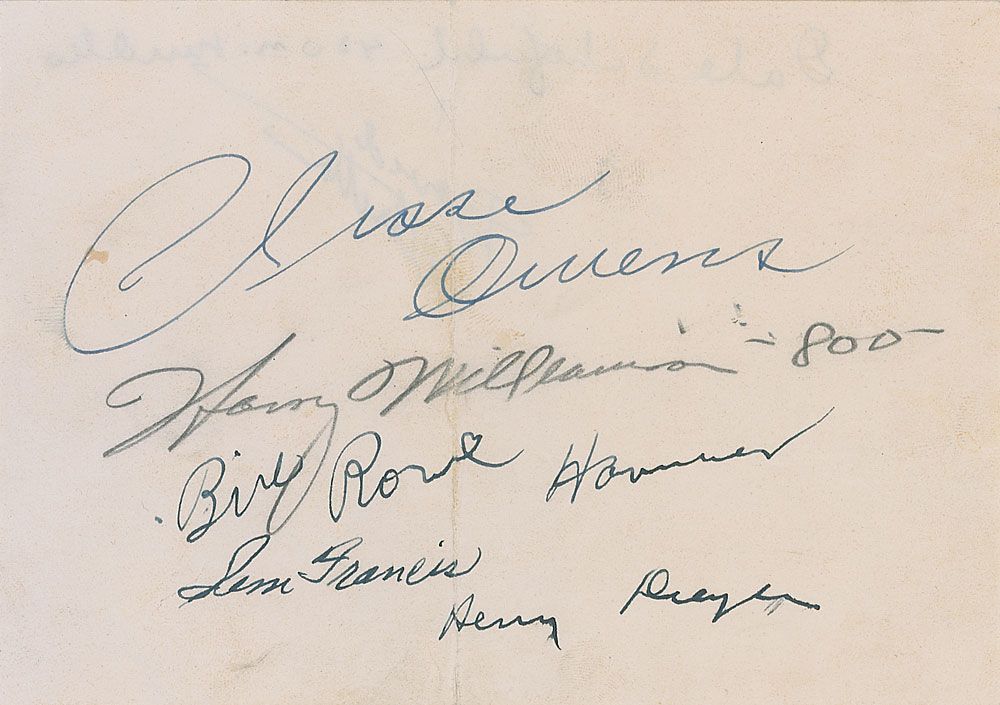 Jesse
Owens
Harry Williamson - 800 -
Bill Rowe Hammer
Sam Francis
Henry Dreyer